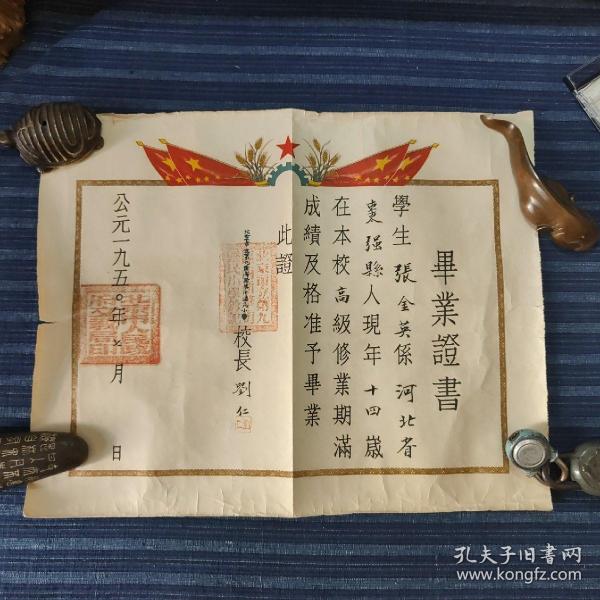 畢業證書
學生張金英係河北省
棗强縣人現年十四歲
在本校高級修業期滿
成績及格准予畢業
此證
校長 劉仁
公元一九五〇年七月 日
孔夫子旧书网
www.kongfz.com